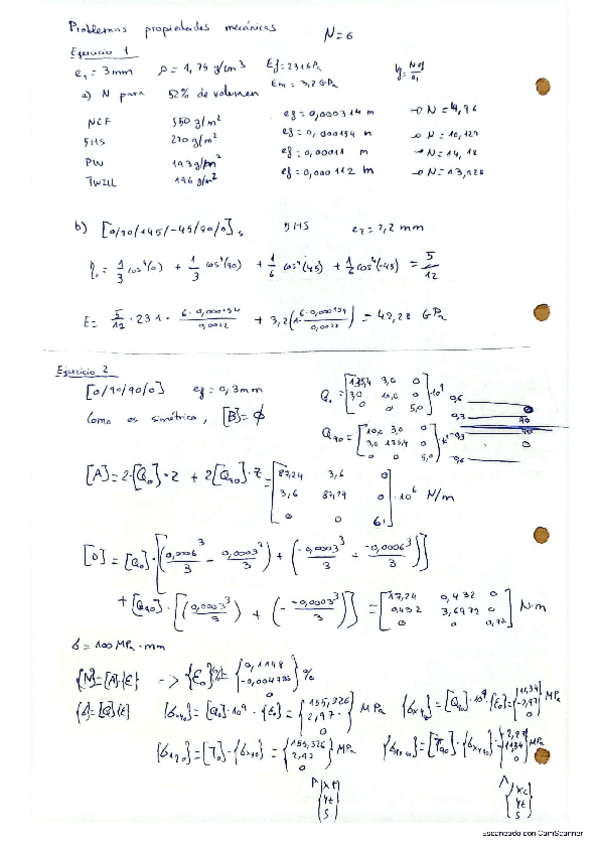 Problemas propiedades mecánicas N=6
Ejercicio 1
e₁ = 3mm ρ = 1,75 g/cm³ Ef = 231GPa
Em = 3,2 GPa
a) N para 52% de volumen
NCF 550 g/m² ef = 0,000314 m → N = 4,96
5HS 270 g/m² ef = 0,000154 m → N = 10,129
PW 193 g/m² ef = 0,00011 m → N = 14,18
TWILL 196 g/m² ef = 0,000112 m → N = 13,928
b) [0/90/45/-45/90/0]s 5HS e₂ = 2,2 mm
η₀ = 1/3 cos⁴(0) + 1/3 cos⁴(90) + 1/6 cos⁴(45) + 1/6 cos⁴(-45) = 5/12
E = 5/12 · 231 · 6·0,000154/0,0022 + 3,2(1-6·0,000154/0,0022) = 42,28 GPa
Ejercicio 2
[0/90/90/0] ef = 0,3mm
Como es simétrico, [B] = ϕ
Q₀ = [135,4 3,0 0
3,0 10,0 0
0 0 5,0] ·10⁹
Q₉₀ = [10,0 3,0 0
3,0 135,4 0
0 0 5,0]
0,6
0,3
-0,3
-0,6
0
90
90
0
[A] = 2·[Q₀]·z + 2[Q₉₀]·z = [87,24 3,6 0
3,6 87,24 0
0 0 6] ·10⁶ N/m
[D] = [Q₀]·[(0,0006³/3 - 0,0003³/3) + (-0,0003³/3 - -0,0006³/3)]
+ [Q₉₀]·[(0,0003³/3) + (- -0,0003³/3)] = [17,24 0,432 0
0,432 3,6972 0
0 0 0,72] N·m
σ = 100 MPa·mm
{N} = [A]·{ε} -> {ε₀} = {0,1148
-0,004733
0} %
{σ} = [Q]{ε} {σxy₀} = [Q₀]·10⁹·{ε₀} = {155,326
2,97
0} MPa {σxy₉₀} = [Q₉₀]·10⁹·{ε₀} = {11,34
-2,97
0} MPa
{σ12₀} = [T₀]·{σxy₀} = {155,326
2,97
0} MPa {σ12₉₀} = [T₉₀]·{σxy₉₀} = {-2,97
11,34
0} MPa
^
{Xt
Yt
S}
^
{Xc
Yt
S}
Escaneado con CamScanner